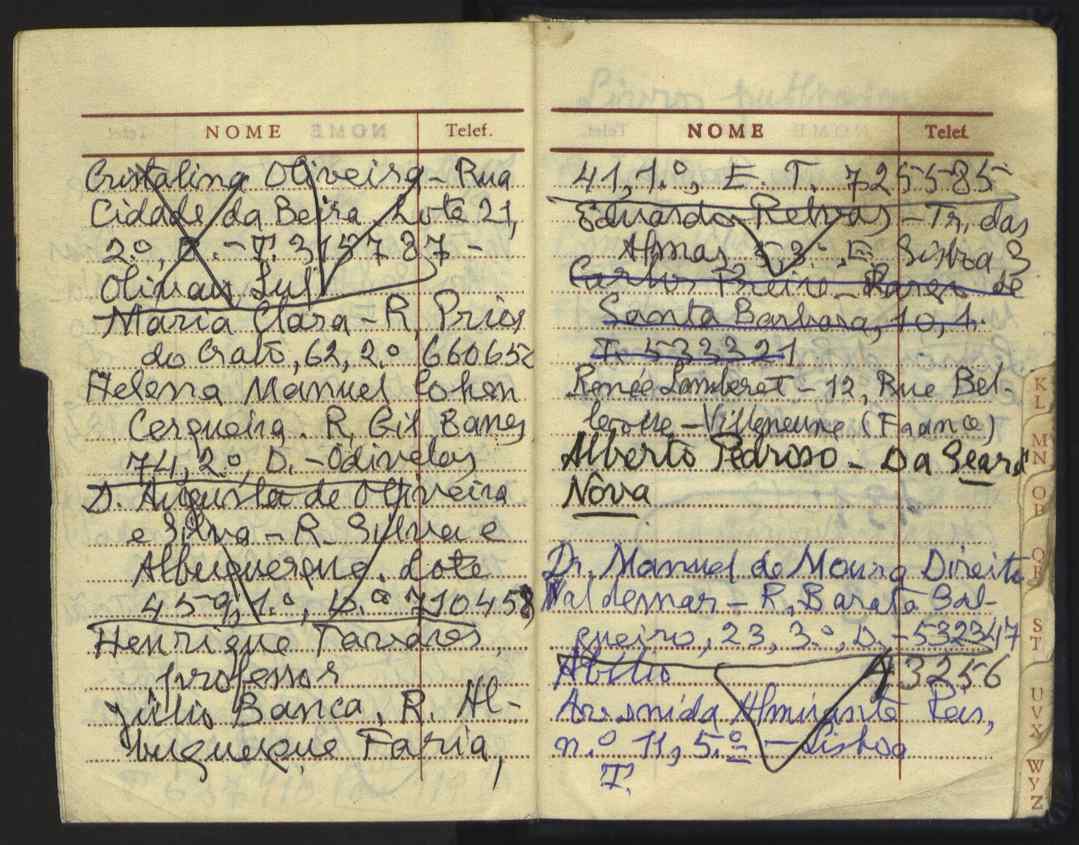 NOME Telef.
Cristalina Oliveira - Rua
Cidade da Beira, Lote 21,
2.º, D. - T. 3157787 -
Olivais Sul
Maria Clara - R. Prior
do Crato, 62, 2.º 660652
Helena Manuel Cohen
Cerqueira. R. Gil Eanes
74, 2.º, D. - Odivelas
D. Augusta de Oliveira
e Silva - R. Silva e
Albuquerque. Lote
459, 1.º, D.º 710458
Henrique Tavares,
professor
Júlio Banca, R. Al-
buquerque Faria,
NOME Telef.
41, 1.º, E. T. 725585
Eduardo Relvas - Tr. das
Almas 3.º, E. Lisboa 3
Carlos Freire - Largo de
Santa Barbara, 10, 1.
T. 533321
Renée Lamberet - 12, Rue Bel-
- Villeneuve (France)
Alberto Pedroso - Da Seara
Nova
Dr. Manuel de Moura Direito
Valdemar - R. Barata Sal-
gueiro, 23, 3.º, D. - 532347
Abílio 43256
Avenida Almirante Reis,
n.º 11, 5.º - Lisboa
T.
KL
MN
OP
QR
ST
UVX
WYZ